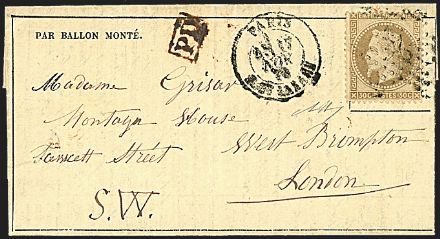 PAR BALLON MONTÉ.
PD
PARIS
Madame Grisar
Montagu House
Fawcett Street West Brompton
S.W. London